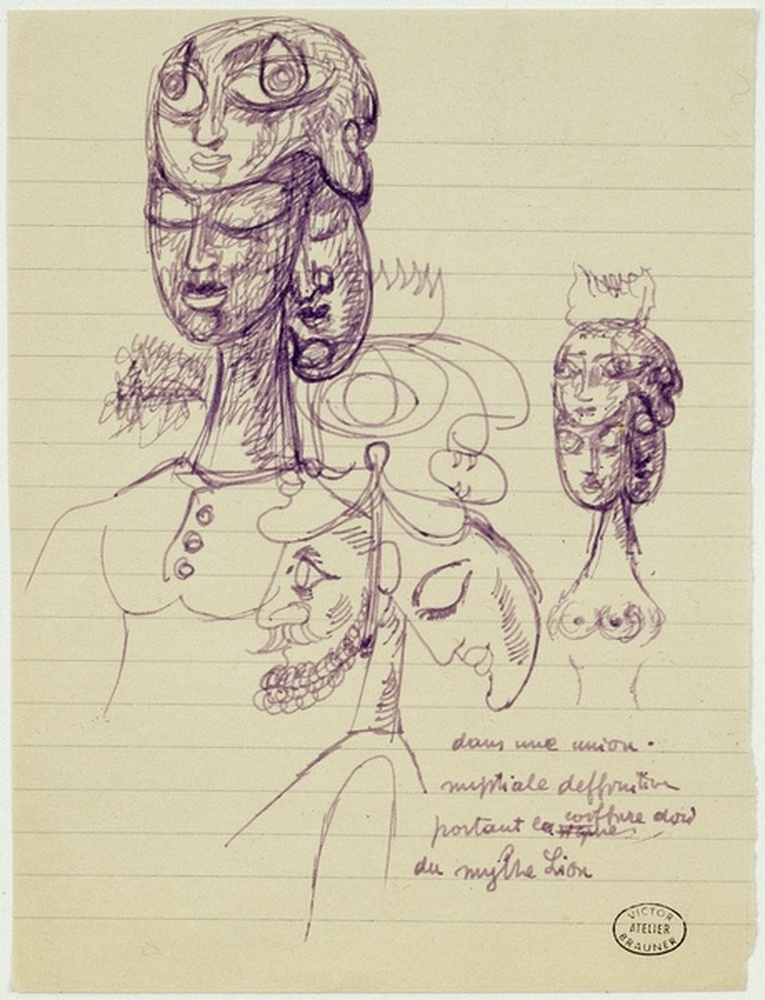 dans une union.
nuptiale deffinitive
portant la coiffure
du mythe Lion
VICTOR
ATELIER
BRAUNER